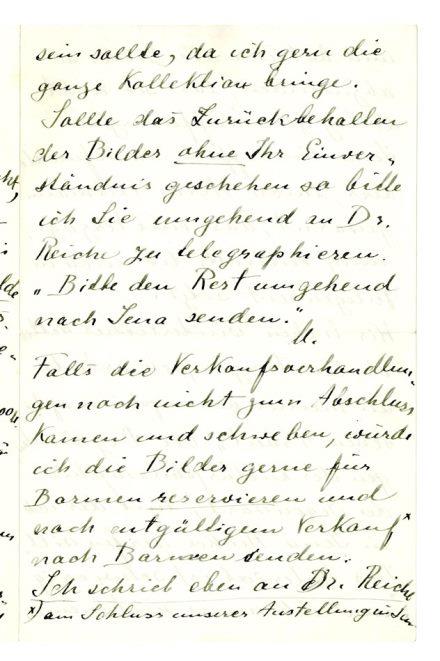 sein sollte, da ich gern die
ganze Kollektion bringe.
Sollte das Zurückbehalten
der Bilder ohne Ihr Einver-
ständnis geschehen so bitte
ich Sie umgehend an Dr.
Reiche zu telegraphieren.
„Bitte den Rest umgehend
nach Jena senden."
Falls die Verkaufsverhandlun-
gen noch nicht zum Abschluss
kamen und schweben, würde
ich die Bilder gerne für
Barmen reservieren und
nach entgültigem Verkauf x
nach Barmen senden.
Ich schrieb eben an Dr. Reiche
x) am Schluss unserer Austellung in Jena